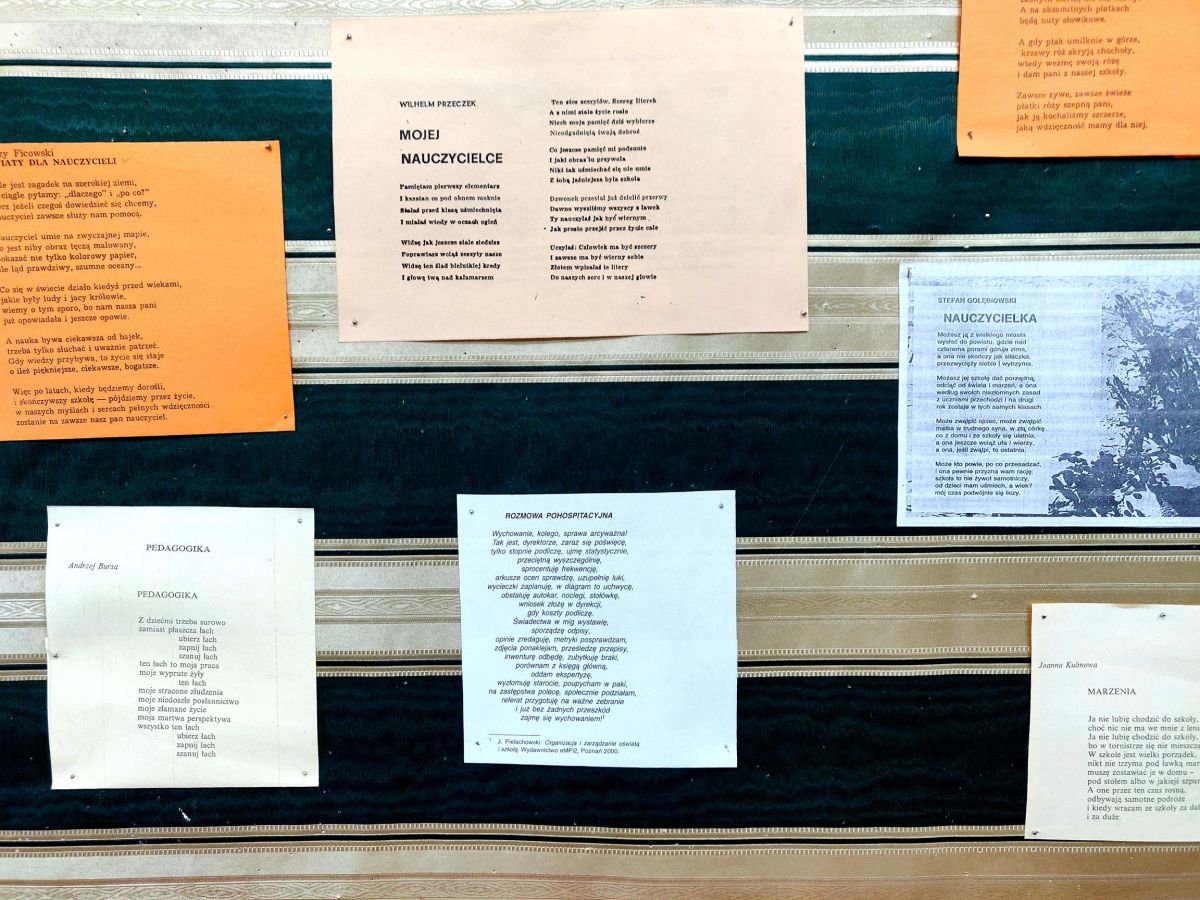 zy Ficowski
IATY DLA NAUCZYCIELI
le jest zagadek na szerokiej ziemi,
ciągle pytamy: „dlaczego” i „po co?”
ecz jeżeli czegoś dowiedzieć się chcemy,
auczyciel zawsze służy nam pomocą.
auczyciel umie na zwyczajnej mapie,
o jest niby obraz tęczą malowany,
pokazać nie tylko kolorowy papier,
ale ląd prawdziwy, szumne oceany...
Co się w świecie działo kiedyś przed wiekami,
jakie były ludy i jacy królowie,
wiemy o tym sporo, bo nam nasza pani
już opowiadała i jeszcze opowie.
A nauka bywa ciekawsza od bajek,
trzeba tylko słuchać i uważnie patrzeć.
Gdy wiedzy przybywa, to życie się staje
o ileż piękniejsze, ciekawsze, bogatsze.
Więc po latach, kiedy będziemy dorośli,
i skończywszy szkołę — pójdziemy przez życie,
w naszych myślach i sercach pełnych wdzięczności
zostanie na zawsze nasz pan nauczyciel.
WILHELM PRZECZEK
MOJEJ
NAUCZYCIELCE
Pamiętam pierwszy elementarz
I kasztan co pod oknem moknie
Stałaś przed klasą uśmiechnięta
I miałaś wtedy w oczach ogień
Widzę jak jeszcze stale siedzisz
Poprawiasz wciąż zeszyty nasze
Widzę ten ślad bielutkiej kredy
I głowę twą nad kałamarzem
Ten stos zeszytów. Szereg literek
A z nimi stale życie rosło
Niech moja pamięć dziś wybierze
Nieodgadnioną twoją dobroć
Co jeszcze pamięć mi podsunie
I jaki obraz tu przywoła
Nikt tak uśmiechać się nie umie
Z tobą jaśniejsza była szkoła
Dzwonek przestał już dzielić przerwy
Dawno wyszliśmy wszyscy z ławek
Ty nauczyłaś jak być wiernym
Jak prosto przejść przez życie całe
Uczyłaś: Człowiek ma być szczery
I zawsze ma być wierny sobie
Złotem wpisałaś te litery
Do naszych serc i w naszej głowie
A na aksamitnych płatkach
będą nuty słowikowe.
A gdy ptak umilknie w górze,
krzewy róż skryją chochoły,
wtedy wezmę swoją różę
i dam pani z naszej szkoły.
Zawsze żywe, zawsze świeże
płatki róży szepną pani,
jak ją kochaliśmy szczerze,
jaką wdzięczność mamy dla niej.
STEFAN GOŁĘBIOWSKI
NAUCZYCIELKA
Możesz ją z wielkiego miasta
wysłać do powiatu, gdzie nad
czterema porami góruje zima,
a ona nie skończy jak siłaczka,
przezwycięży siebie i wytrzyma.
Możesz jej szkołę dać porządną,
odciąć od świata i marzeń, a ona
według swoich niezłomnych zasad
z uczniami przechodzi i na drugi
rok zostaje w tych samych klasach
Może zwątpić ojciec, może zwątpić
matka w trudnego syna, w złą córkę
co z domu i ze szkoły się ulatnia,
a ona jeszcze wciąż ufa i wierzy,
a ona, jeśli zwątpi, to ostatnia.
Może kto powie, po co przesadzać,
i ona pewnie przyzna wam rację:
szkoła to nie żywot samotniczy,
od dzieci mam uśmiech, a wiek?
mój czas podwójnie się liczy.
PEDAGOGIKA
Andrzej Bursa
PEDAGOGIKA
Z dziećmi trzeba surowo
zamiast płaszcza łach
ubierz łach
zapnij łach
szanuj łach
ten łach to moja praca
moje wyprute żyły
ten łach
moje stracone złudzenia
moje niedoszłe posłannictwo
moje złamane życie
moja martwa perspektywa
wszystko ten łach
ubierz łach
zapnij łach
szanuj łach
ROZMOWA POHOSPITACYJNA
Wychowanie, kolego, sprawa arcyważna!
Tak jest, dyrektorze, zaraz się poświęcę,
tylko stopnie podliczę, ujmę statystycznie,
przeciętną wyszczególnię,
sprocentuję frekwencję,
arkusze ocen sprawdzę, uzupełnię luki,
wycieczki zaplanuję, w diagram to uchwycę,
obstaluję autokar, noclegi, stołówkę,
wniosek złożę w dyrekcji,
gdy koszty podliczę.
Świadectwa w mig wystawię,
sporządzę odpisy,
opinie zredaguję, metryki posprawdzam,
zdjęcia ponaklejam, prześledzę przepisy,
inwenturę odbędę, zubytkuję braki,
porównam z księgą główną,
oddam ekspertyzę,
wyzłomuję starocie, poupycham w paki,
na zastępstwa polecę, społecznie podziałam,
referat przygotuję na ważne zebranie
i już bez żadnych przeszkód
zajmę się wychowaniem!¹
¹ J. Pielachowski. Organizacja i zarządzanie oświatą
i szkołą. Wydawnictwo eMPi2, Poznań 2000.
Joanna Kulmowa
MARZENIA
Ja nie lubię chodzić do szkoły,
choć nic nie ma we mnie z leni
Ja nie lubię chodzić do szkoły,
bo w tornistrze się nie mieszcza
W szkole jest wielki porządek,
nikt nie trzyma pod ławką mar
muszę zostawiać je w domu –
pod stołem albo w jakiejś szpar
A one przez ten czas rosną,
odbywają samotne podróże
i kiedy wracam ze szkoły za dal
i za duże.